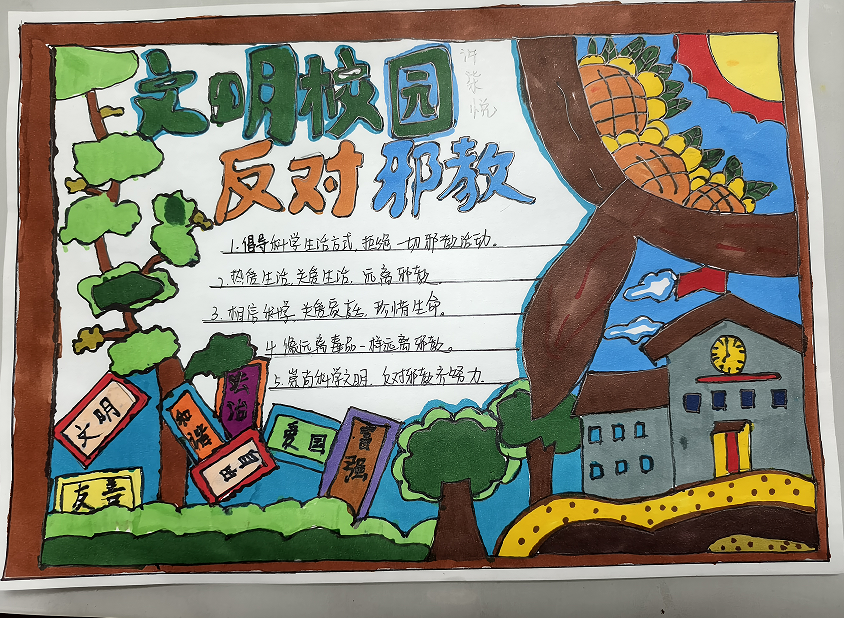 文明校园
许棨悦
反对邪教
1.倡导科学生活方式,拒绝一切邪教活动。
2.热爱生活,关爱生活,远离邪教
3.相信科学,关爱家庭,珍惜生命。
4.像远离毒品一样远离邪教。
5.崇尚科学文明,反对邪教齐努力.
法治
文明
和谐
自由
爱国
富强
友善